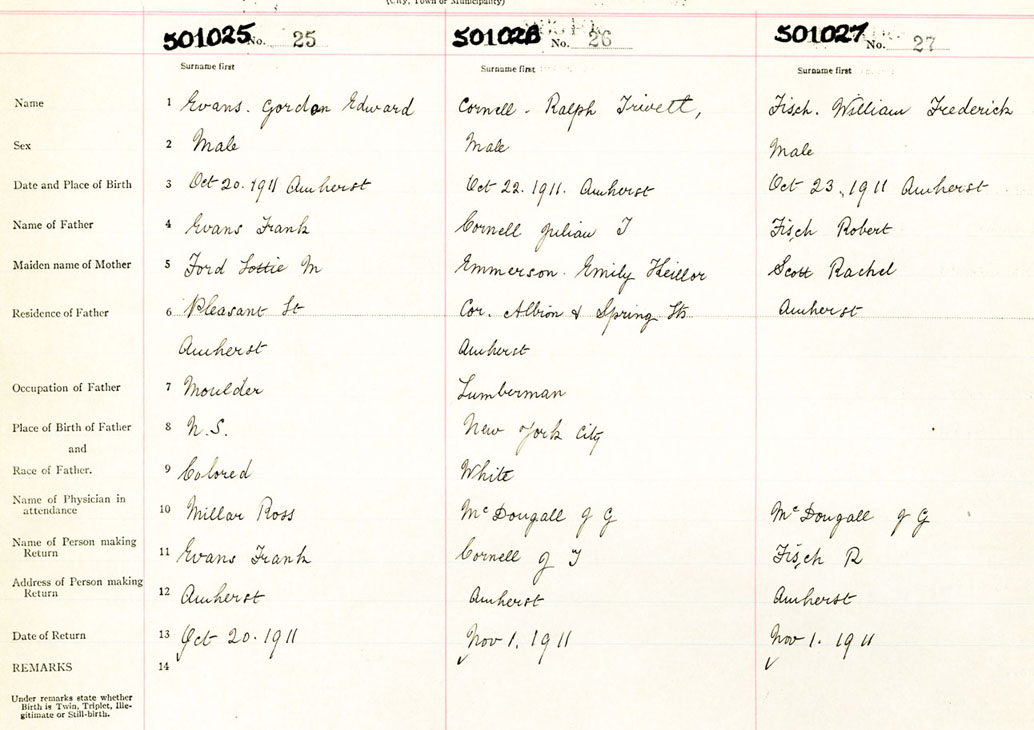 (City, Town or Municipality)
501025 No. 25 501026 No. 26 501027 No. 27
Surname first Surname first Surname first
Name 1 Evans. Gordon Edward Cornell. Ralph Trivett, Fisch. William Frederick
Sex 2 Male Male Male
Date and Place of Birth 3 Oct 20. 1911 Amherst Oct 22. 1911. Amherst Oct 23, 1911 Amherst
Name of Father 4 Evans Frank Cornell Julian T Fisch Robert
Maiden name of Mother 5 Ford Lottie M Emmerson. Emily Scott Rachel
Residence of Father 6 Pleasant St Cor. Albion & Spring Sts Amherst
Amherst Amherst
Occupation of Father 7 Moulder Lumberman
Place of Birth of Father 8 N.S. New York City
and
Race of Father. 9 Colored White
Name of Physician in
attendance 10 Millar Ross McDougall J G McDougall J G
Name of Person making
Return 11 Evans Frank Cornell J T Fisch R
Address of Person making
Return 12 Amherst Amherst Amherst
Date of Return 13 Oct 20. 1911 Nov 1. 1911 Nov 1. 1911
REMARKS 14
Under remarks state whether
Birth is Twin, Triplet, Ille-
gitimate or Still-birth.